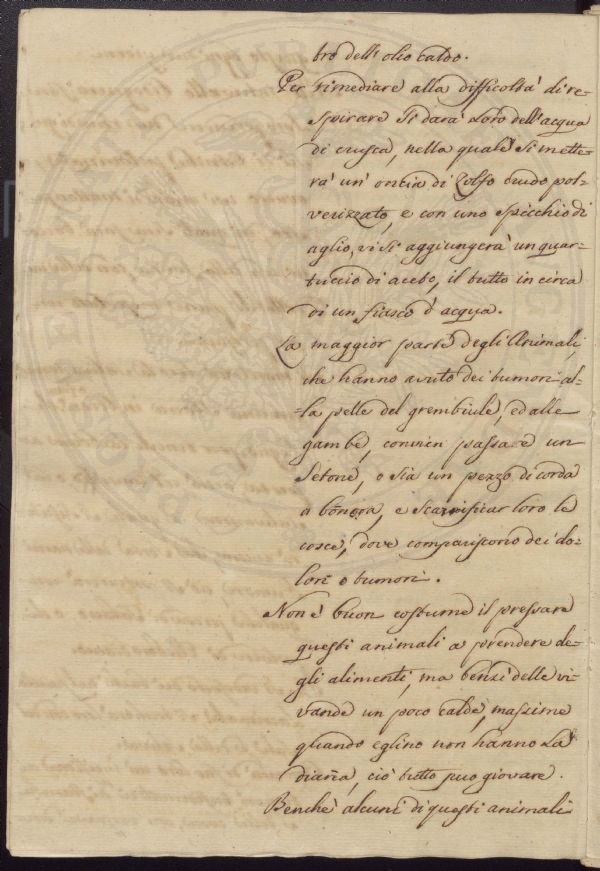 tro dell'olio caldo.
Per rimediare alla difficoltà di re-
spirare si darà loro dell'acqua
di crusca, nella quale si mette-
rà un'oncia di Zolfo crudo pol-
verizzato, e con uno spicchio di
aglio, vi si aggiungerà un quar-
tuccio di aceto, il tutto in circa
di un fiasco d'acqua.
La maggior parte degli Animali,
che hanno avuto dei tumori al-
=la pelle del grembiule, ed alle
gambe, convien passare un
Setone, o sia un pezzo di corda
o
, e scarnificar loro le
cosce, dove compariscono dei do-
lori o tumori.
Non è buon costume il pressare
questi animali a prendere de-
gli alimenti, ma bensì delle vi-
vande un poco calde, massime
quando eglino non hanno la
diaria, ciò tutto può giovare.
Benchè alcuni di questi animali